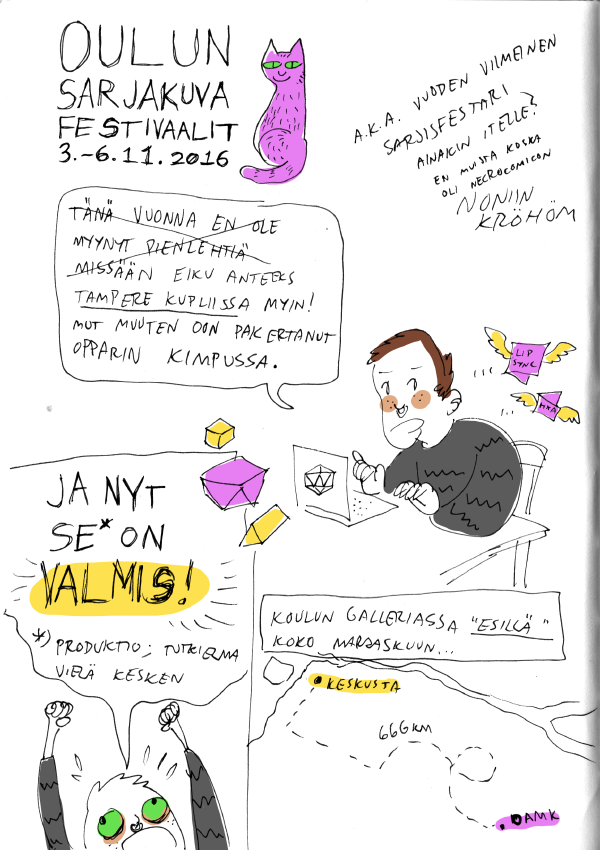 OULUN
SARJAKUVA
FESTIVAALIT
3.-6.11.2016
A.K.A. VUODEN VIIMEINEN
SARJISFESTARI
AINAKIN ITELLE?
EN MUISTA KOSKA
OLI NECROCOMICON
NONIIN
KRÖHÖM
TÄNÄ VUONNA EN OLE
MYYNYT PIENLEHTIÄ
MISSÄÄN EIKU ANTEEKS
TAMPERE KUPLIISSA MYIN!
MUT MUUTEN OON PAKERTANUT
OPPARIN KIMPUSSA.
LIP
SYNC
W
JA NYT
SE* ON
VALMIS!
*) PRODUKTIO; TUTKIELMA
VIELÄ KESKEN
KOULUN GALLERIASSA "ESILLÄ"
KOKO MARRASKUUN...
KESKUSTA
666KM
OAMK